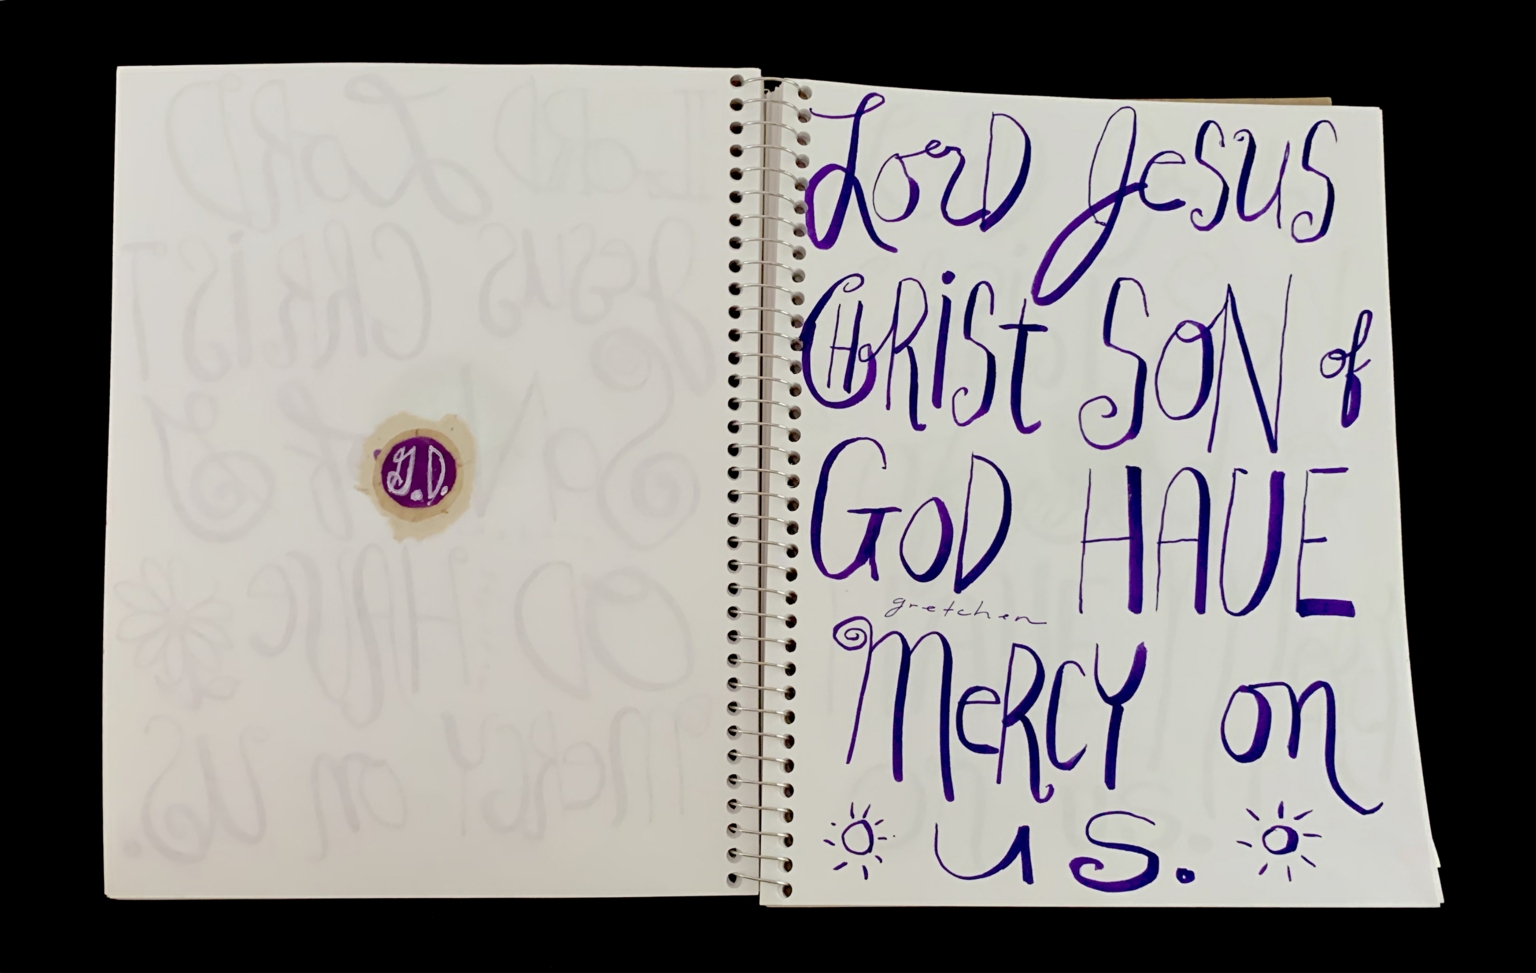 G.D.
Lord Jesus
Christ Son of
God HAVE
gretchen
Mercy on
us.